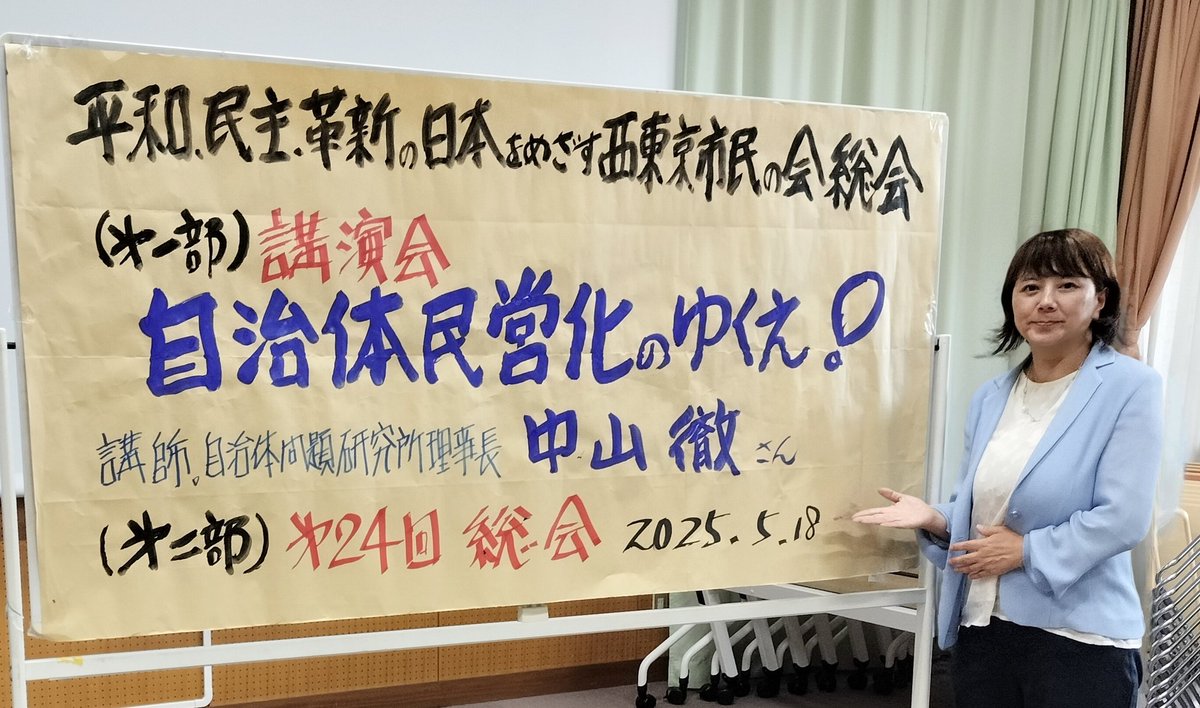 平和、民主、革新の日本をめざす西東京市民の会総会
(第一部)講演会
自治体民営化のゆくえ!?
講師、自治体問題研究所理事長 中山徹さん
(第二部)第24回 総会 2025.5.18